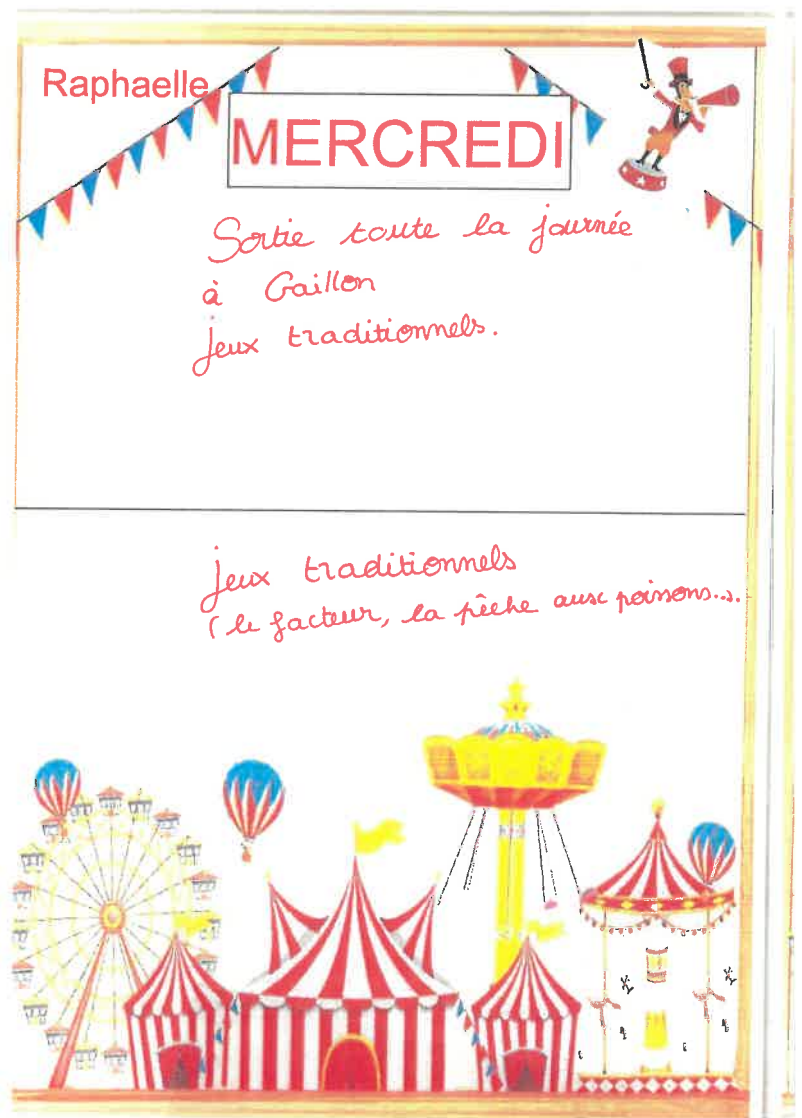 Raphaelle
MERCREDI
Sortie toute la journée
à Gaillon
jeux traditionnels.
jeux traditionnels
(le facteur, la pêche aux poissons...